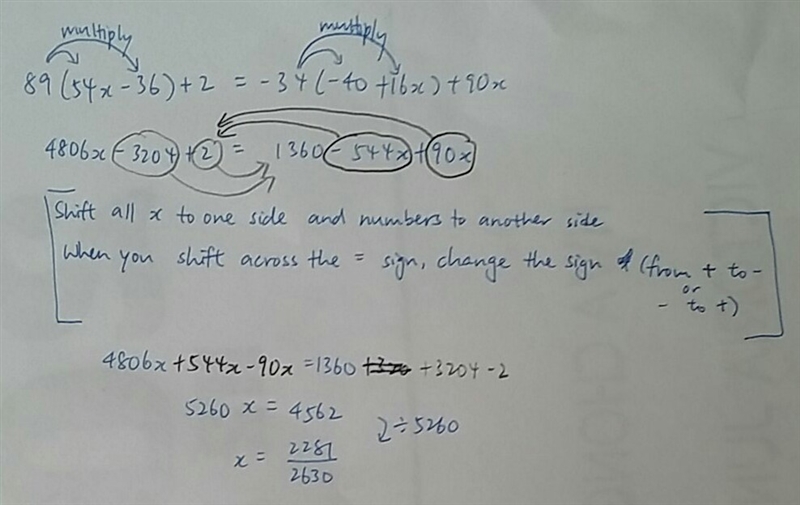 multiply multiply
89(54x - 36) + 2 = -34(-40 + 16x) + 90x
4806x - 3204 + 2 = 1360 - 544x + 90x
Shift all x to one side and numbers to another side
When you shift across the = sign, change the sign (from + to -
or
- to +)
4806x + 544x - 90x = 1360 + 3204 - 2
5260 x = 4562
÷ 5260
x = 2281/2630